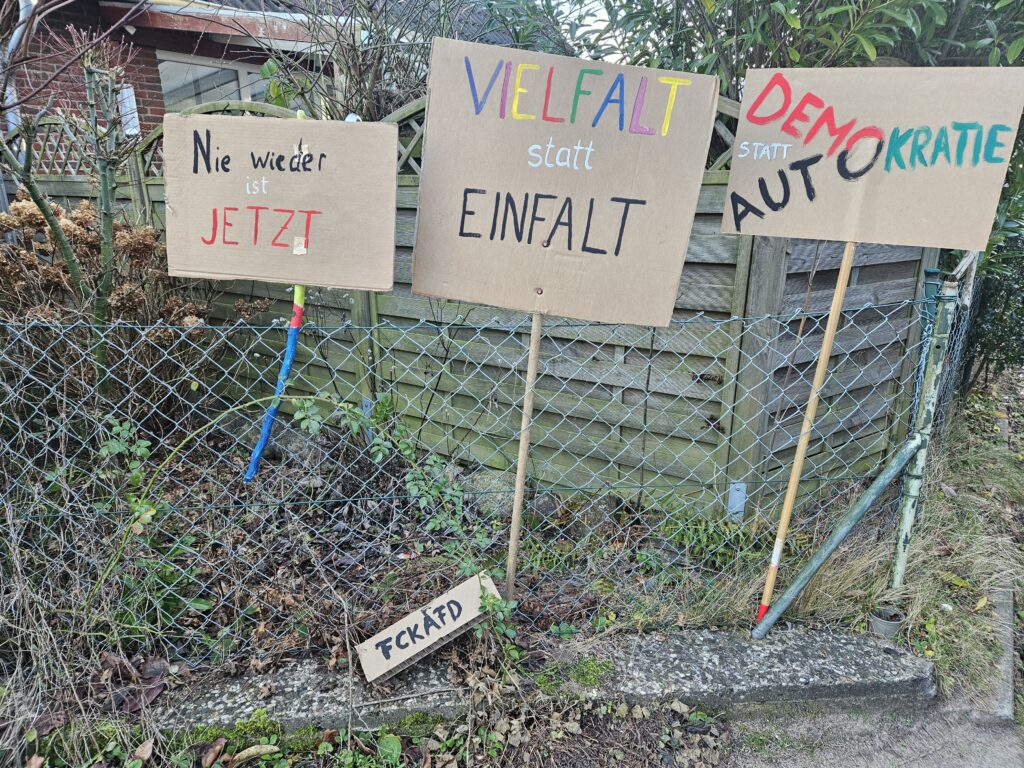 Nie wieder
ist
JETZT
VIELFALT
statt
EINFALT
DEMOKRATIE
STATT
AUTO
FCKAFD